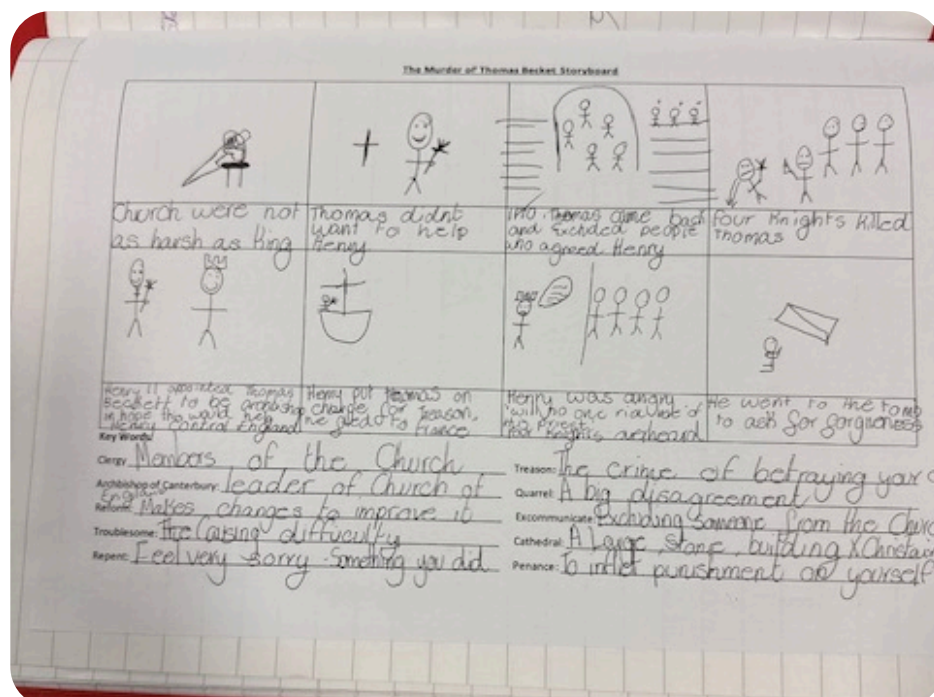 The Murder of Thomas Becket Storyboard
Church were not
as harsh as King
Thomas didnt
want to help
Henry
Thomas came back
and Excluded people
who agreed Henry
Four Knights killed
Thomas
Henry II appointed Thomas
Beckett to be Archbishop
in hope tho would help
Henry control England
Henry put Thomas on
charge for Treason,
he fled to France
Henry was angry
'will no one rid
priest'
Four Knights overheard
He went to the tomb
to ask for forgiveness
Key Words
Clergy: Members of the Church
Archbishop of Canterbury: leader of Church of
England
Reform: Makes changes to improve it
Troublesome: causing difficulty
Repent: Feel very sorry something you did
Treason: The crime of betraying your
Quarrel: A big disagreement
Excommunicate: Excluding someone from the
Cathedral: A Large stone building
Penance: To inflict punishment on yourself